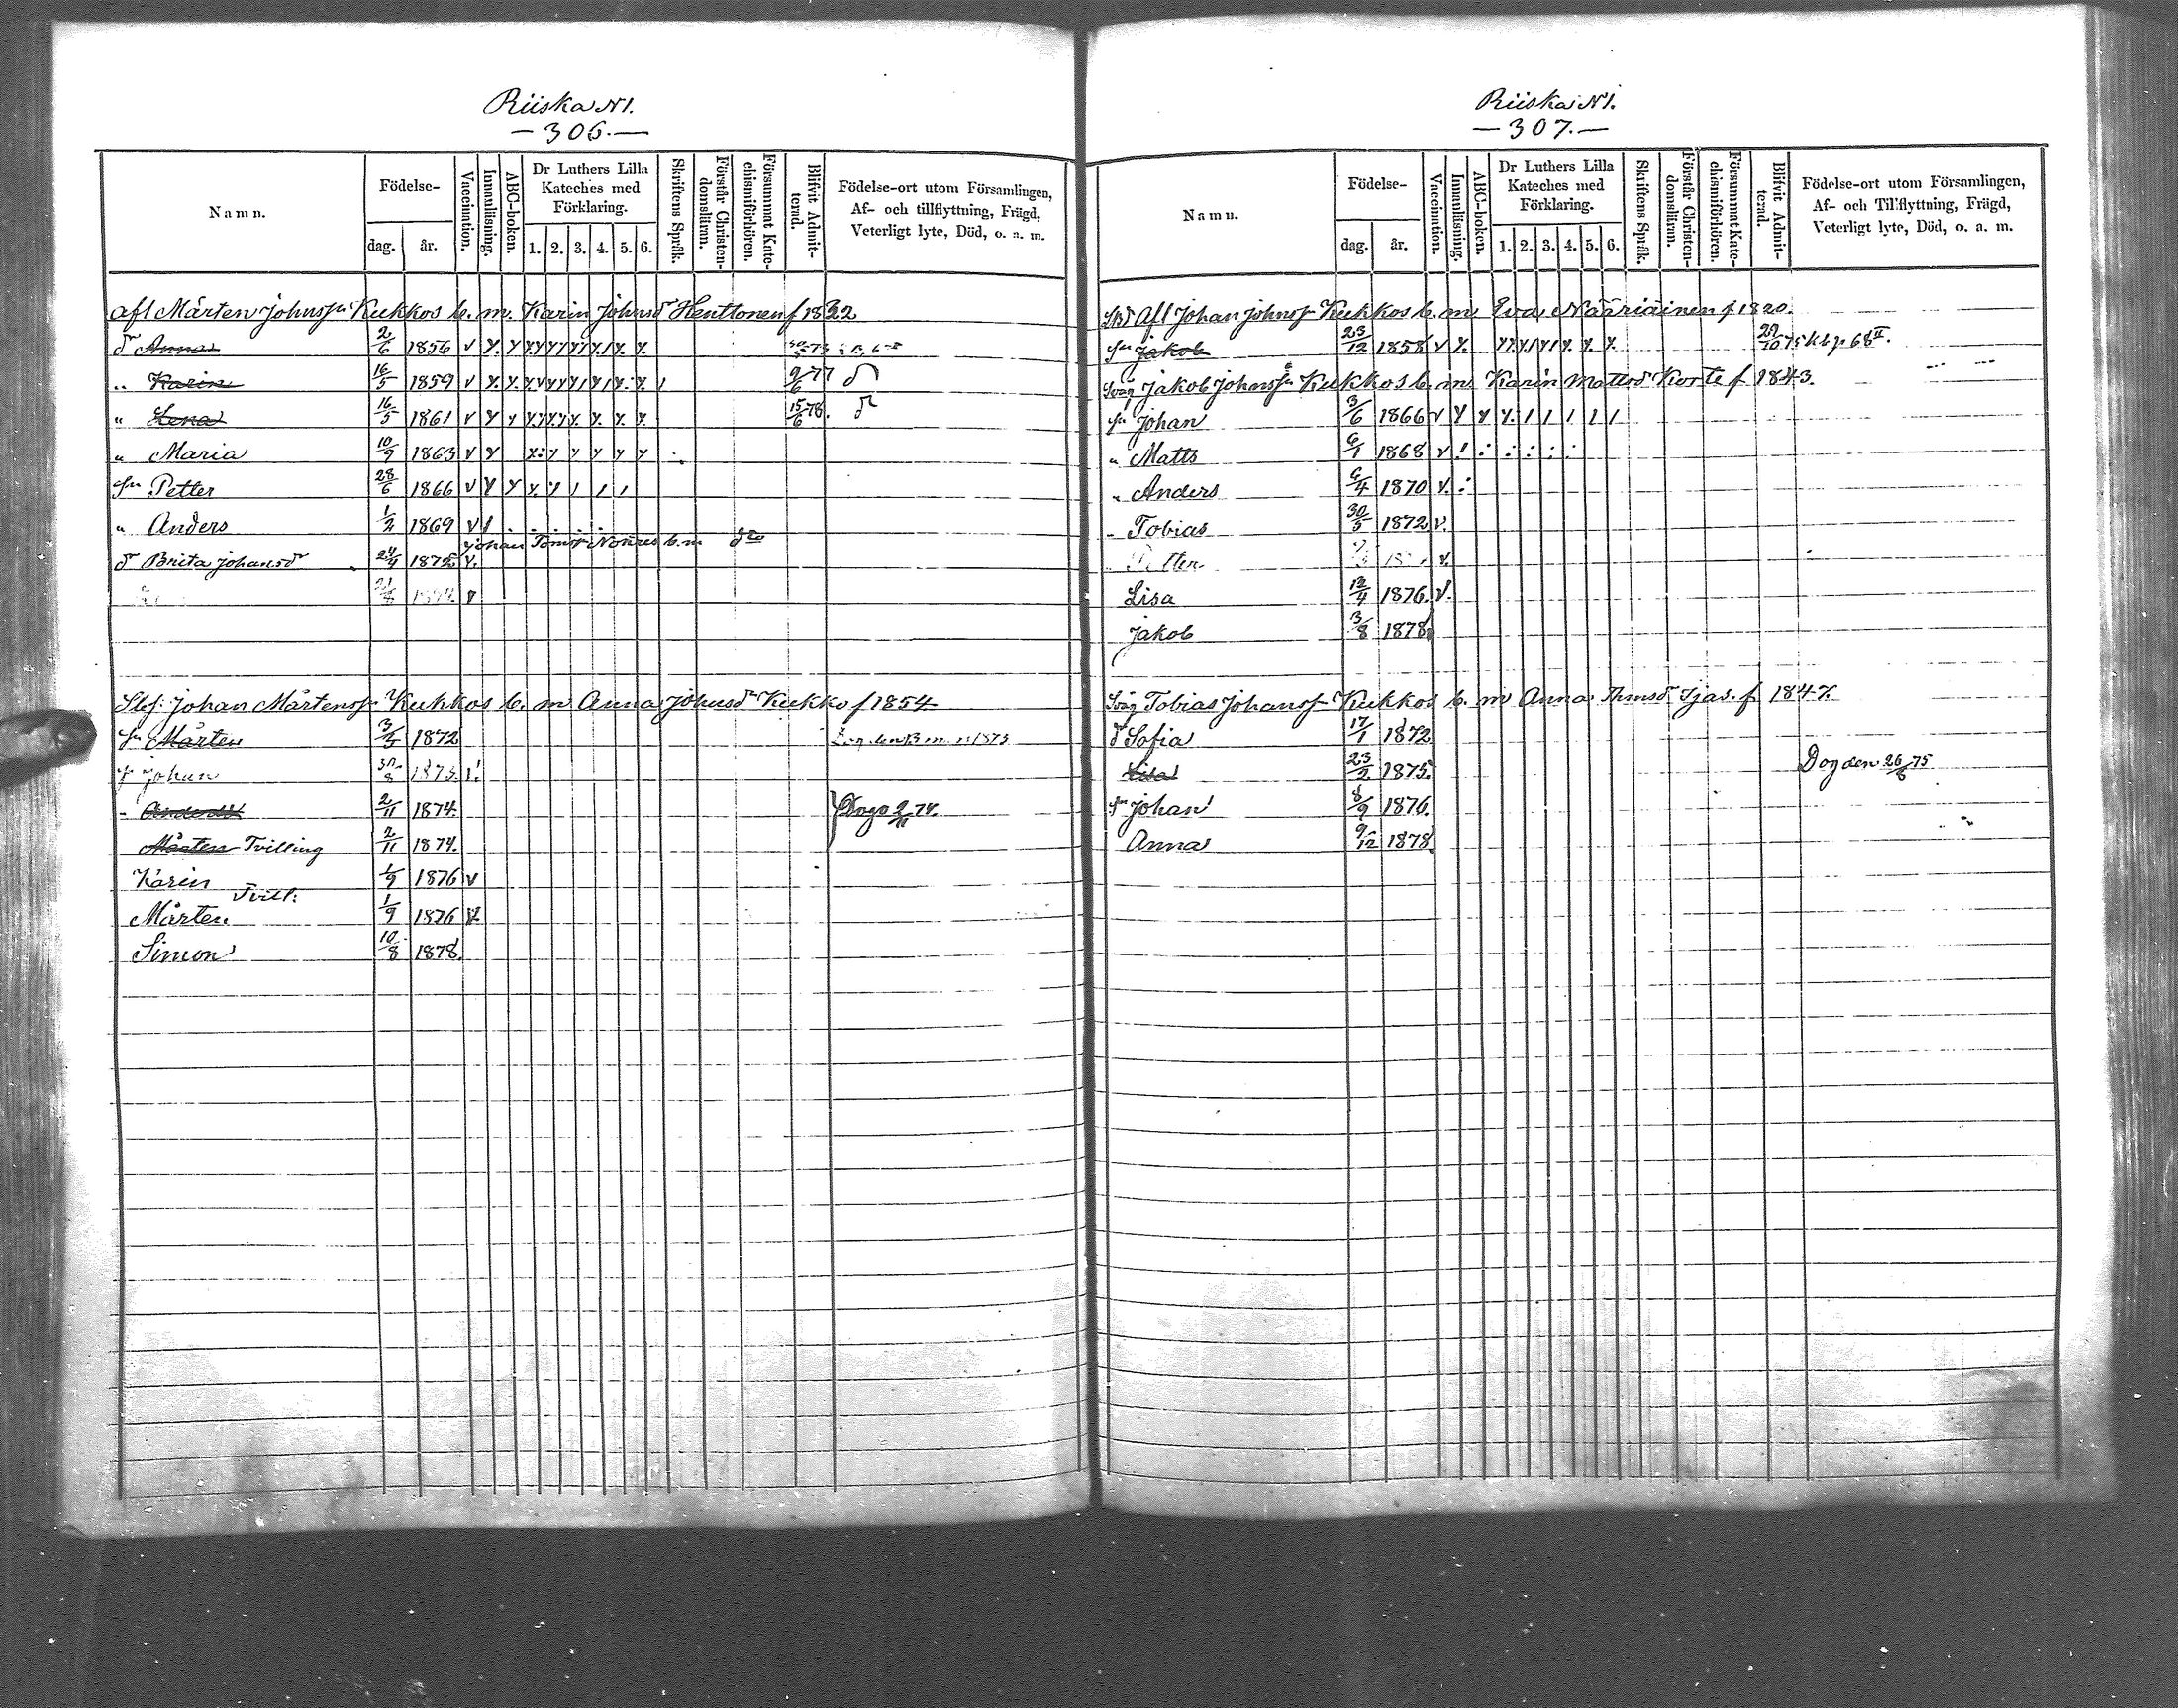 Riiska N1.
— 306. —
Namn.
Födelse-
dag.
år.
Vaccination.
Innanläsning.
ABC-boken.
Dr Luthers Lilla Kateches med Förklaring.
1. 2. 3. 4. 5. 6.
Skriftens Språk.
Förstår Christendomsläran.
Försummat Katechismiförhören.
Blifvit Admitterad.
Födelse-ort utom Församlingen,
Af- och tillflyttning, Frägd,
Veterligt lyte, Död, o. a. m.
afl Mårten Johnss. Kukkos b. m. Karin Johnsd Henttonen f 1822
d Anna 2/6 1856
" Karin 16/5 1859 9/6 77
" Lena 16/5 1861 15/6 78.
" Maria 10/9 1863
sn Petter 28/6 1866
" Anders 1/2 1869
Johan b. m
d Brita Johansd 24/4 1872
Johan Mårtenss. Kukkos b. m Anna Johnsd Kukko f 1854
sn Mårten 3/5 1872
Johan 30/8 1873
- 2/11 1874. 2/11 74.
Mårten Tvilling 2/11 1874.
Karin 1/9 1876
Tvill:
Mårten 1/9 1876
Simon 10/8 1878.
Riiska N1.
— 307. —
Namn.
Födelse-
dag.
år.
Vaccination.
Innanläsning.
ABC-boken.
Dr Luthers Lilla Kateches med Förklaring.
1. 2. 3. 4. 5. 6.
Skriftens Språk.
Förstår Christendomsläran.
Försummat Katechismiförhören.
Blifvit Admitterad.
Födelse-ort utom Församlingen,
Af- och Tillflyttning, Frägd,
Veterligt lyte, Död, o. a. m.
Afl Johan Johnss. Kukkos b. m Eva Nääriäinen f 1820.
sn Jakob 23/12 1858
Jakob Johnss. Kukkos b. m Karin Mattsd Korte f 1843.
sn Johan 3/6 1866
" Matts 6/1 1868
" Anders 6/4 1870
- Tobias 30/5 1872
Petter
Lisa 12/4 1876.
Jakob 3/8 1878
Tobias Johanss. Kukkos b. m Anna Thmsd f 1847.
d Sofia 17/1 1872
Lisa 23/2 1875. Dog den 26/8 75
sn Johan 8/9 1876.
Anna 9/12 1878